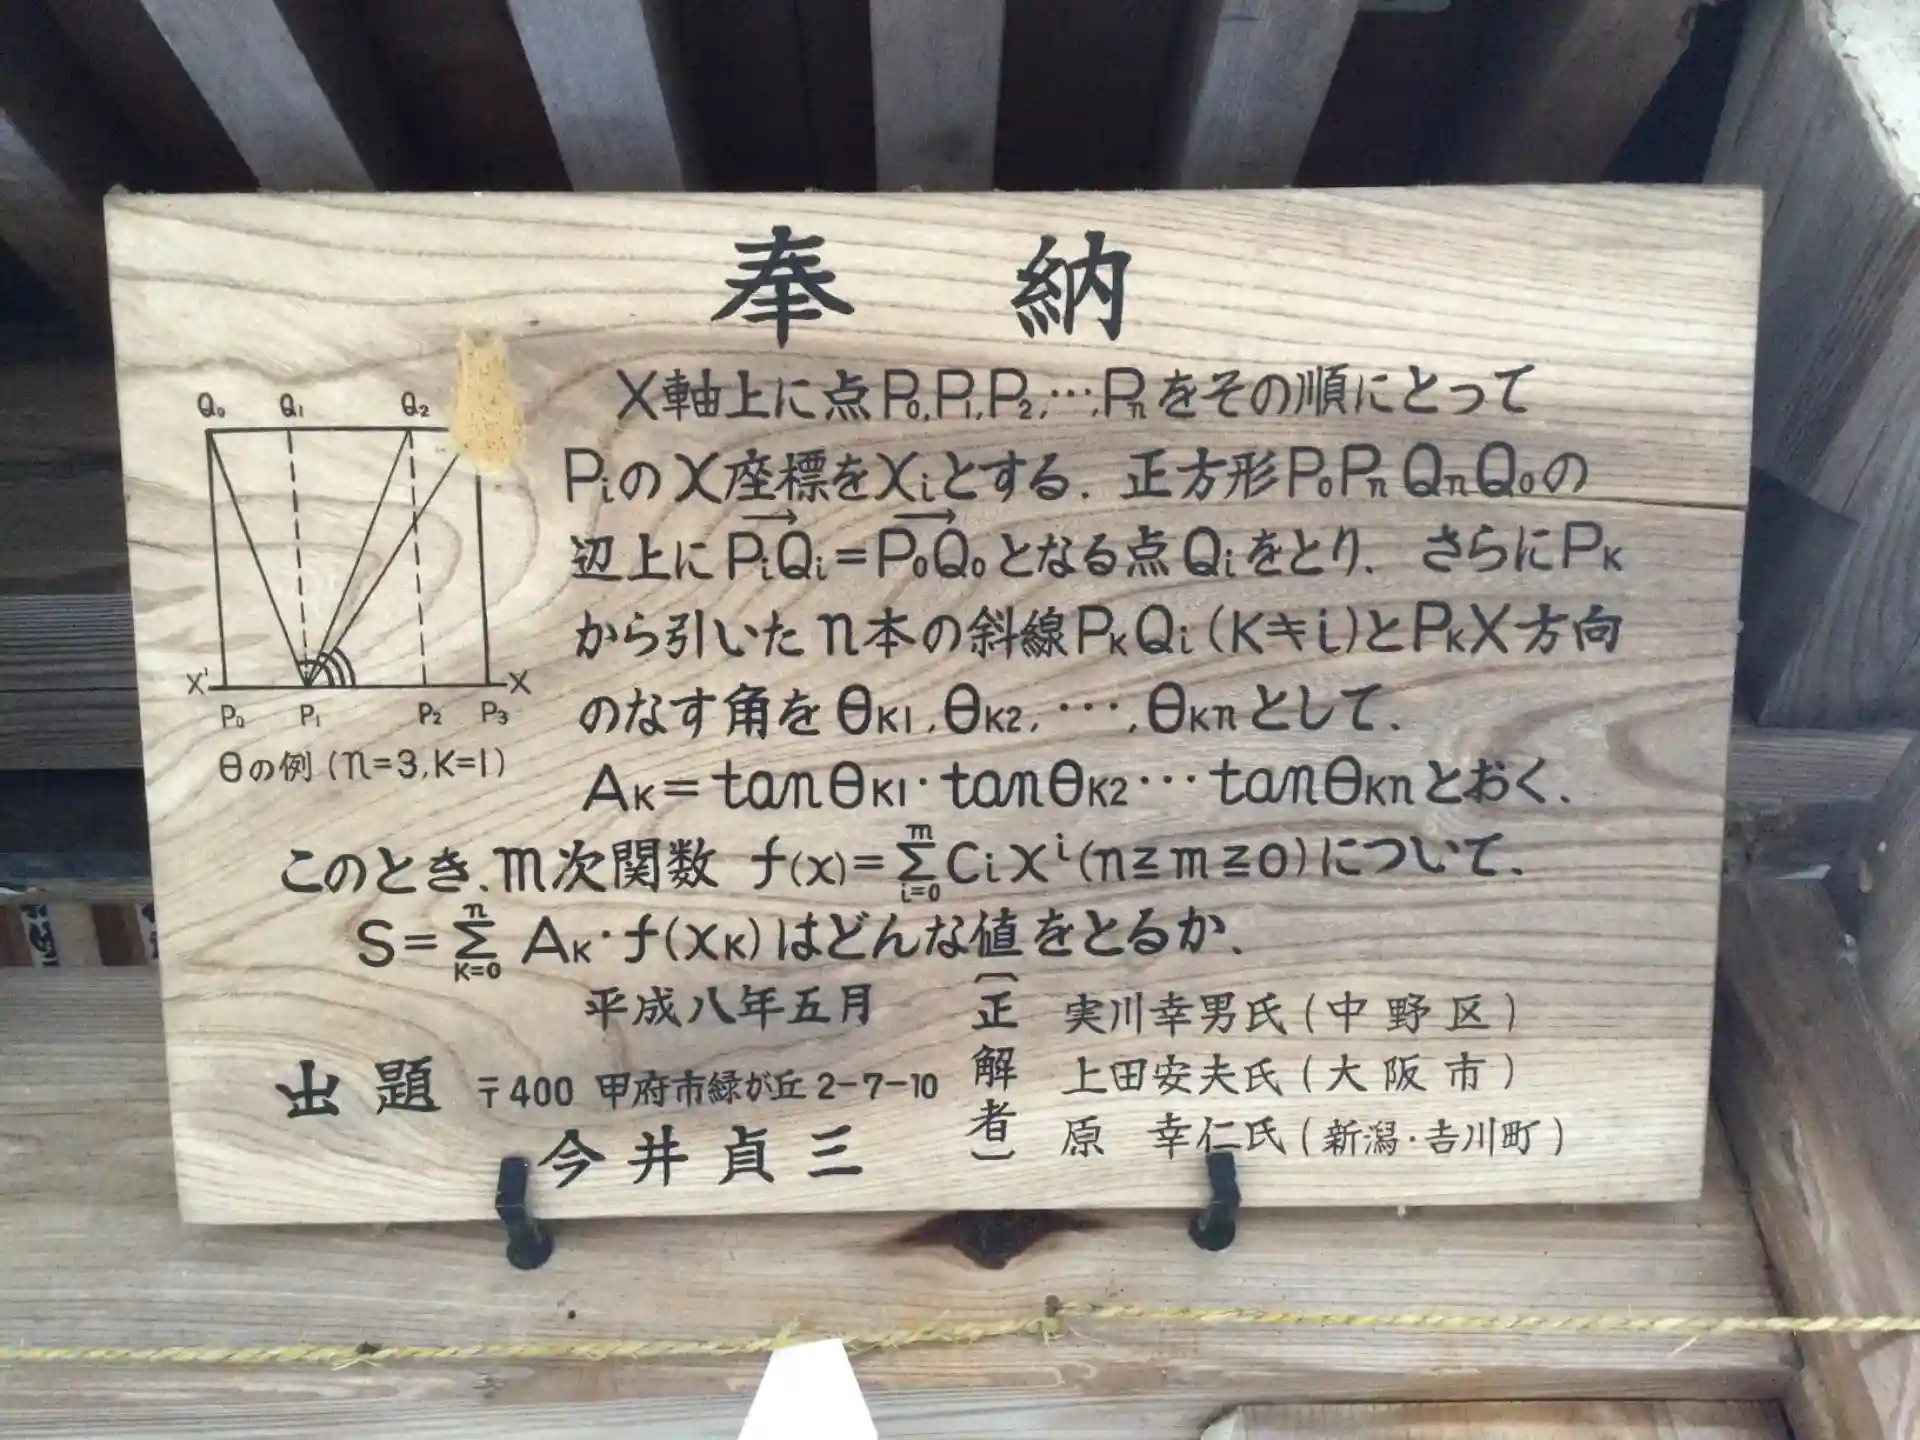 奉納
X軸上に点P₀,P₁,P₂,…,Pₙをその順にとって
PᵢのX座標をXᵢとする. 正方形P₀PₙQₙQ₀の
辺上に→PᵢQᵢ=→P₀Q₀となる点Qᵢをとり. さらにPK
から引いたn本の斜線PKQᵢ(K≠i)とPKX方向
のなす角をθK1,θK2,…,θKnとして.
AK=tanθK1・tanθK2…tanθKnとおく.
このとき,m次関数 f(x)=Σ[i=0,m]Cᵢxⁱ(n≧m≧0)について.
S=Σ[K=0,n] AK・f(xK)はどんな値をとるか.
Q₀ Q₁ Q₂
X' X
P₀ P₁ P₂ P₃
θの例(n=3,K=1)
平成八年五月
出題 〒400 甲府市緑が丘2-7-10
今井貞三
(正解者)
実川幸男氏(中野区)
上田安夫氏(大阪市)
原 幸仁氏(新潟・吉川町)